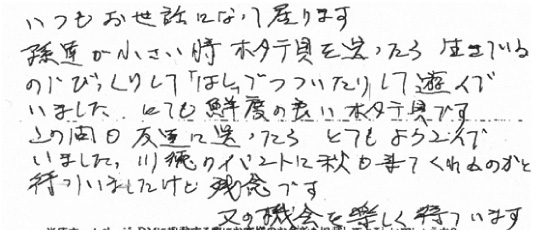 いつもお世話になって居ります
孫達が小さい時ホタテ貝を送ったら生きている
のでびっくりして「はし」でつついたりして遊んで
いました とても鮮度の良いホタテ貝です
この間も友達に送ったら とてもよろこんで
いました。川徳のイベントに秋も来てくれるのかと
待っていましたけど残念です
又の機会を楽しく待ています